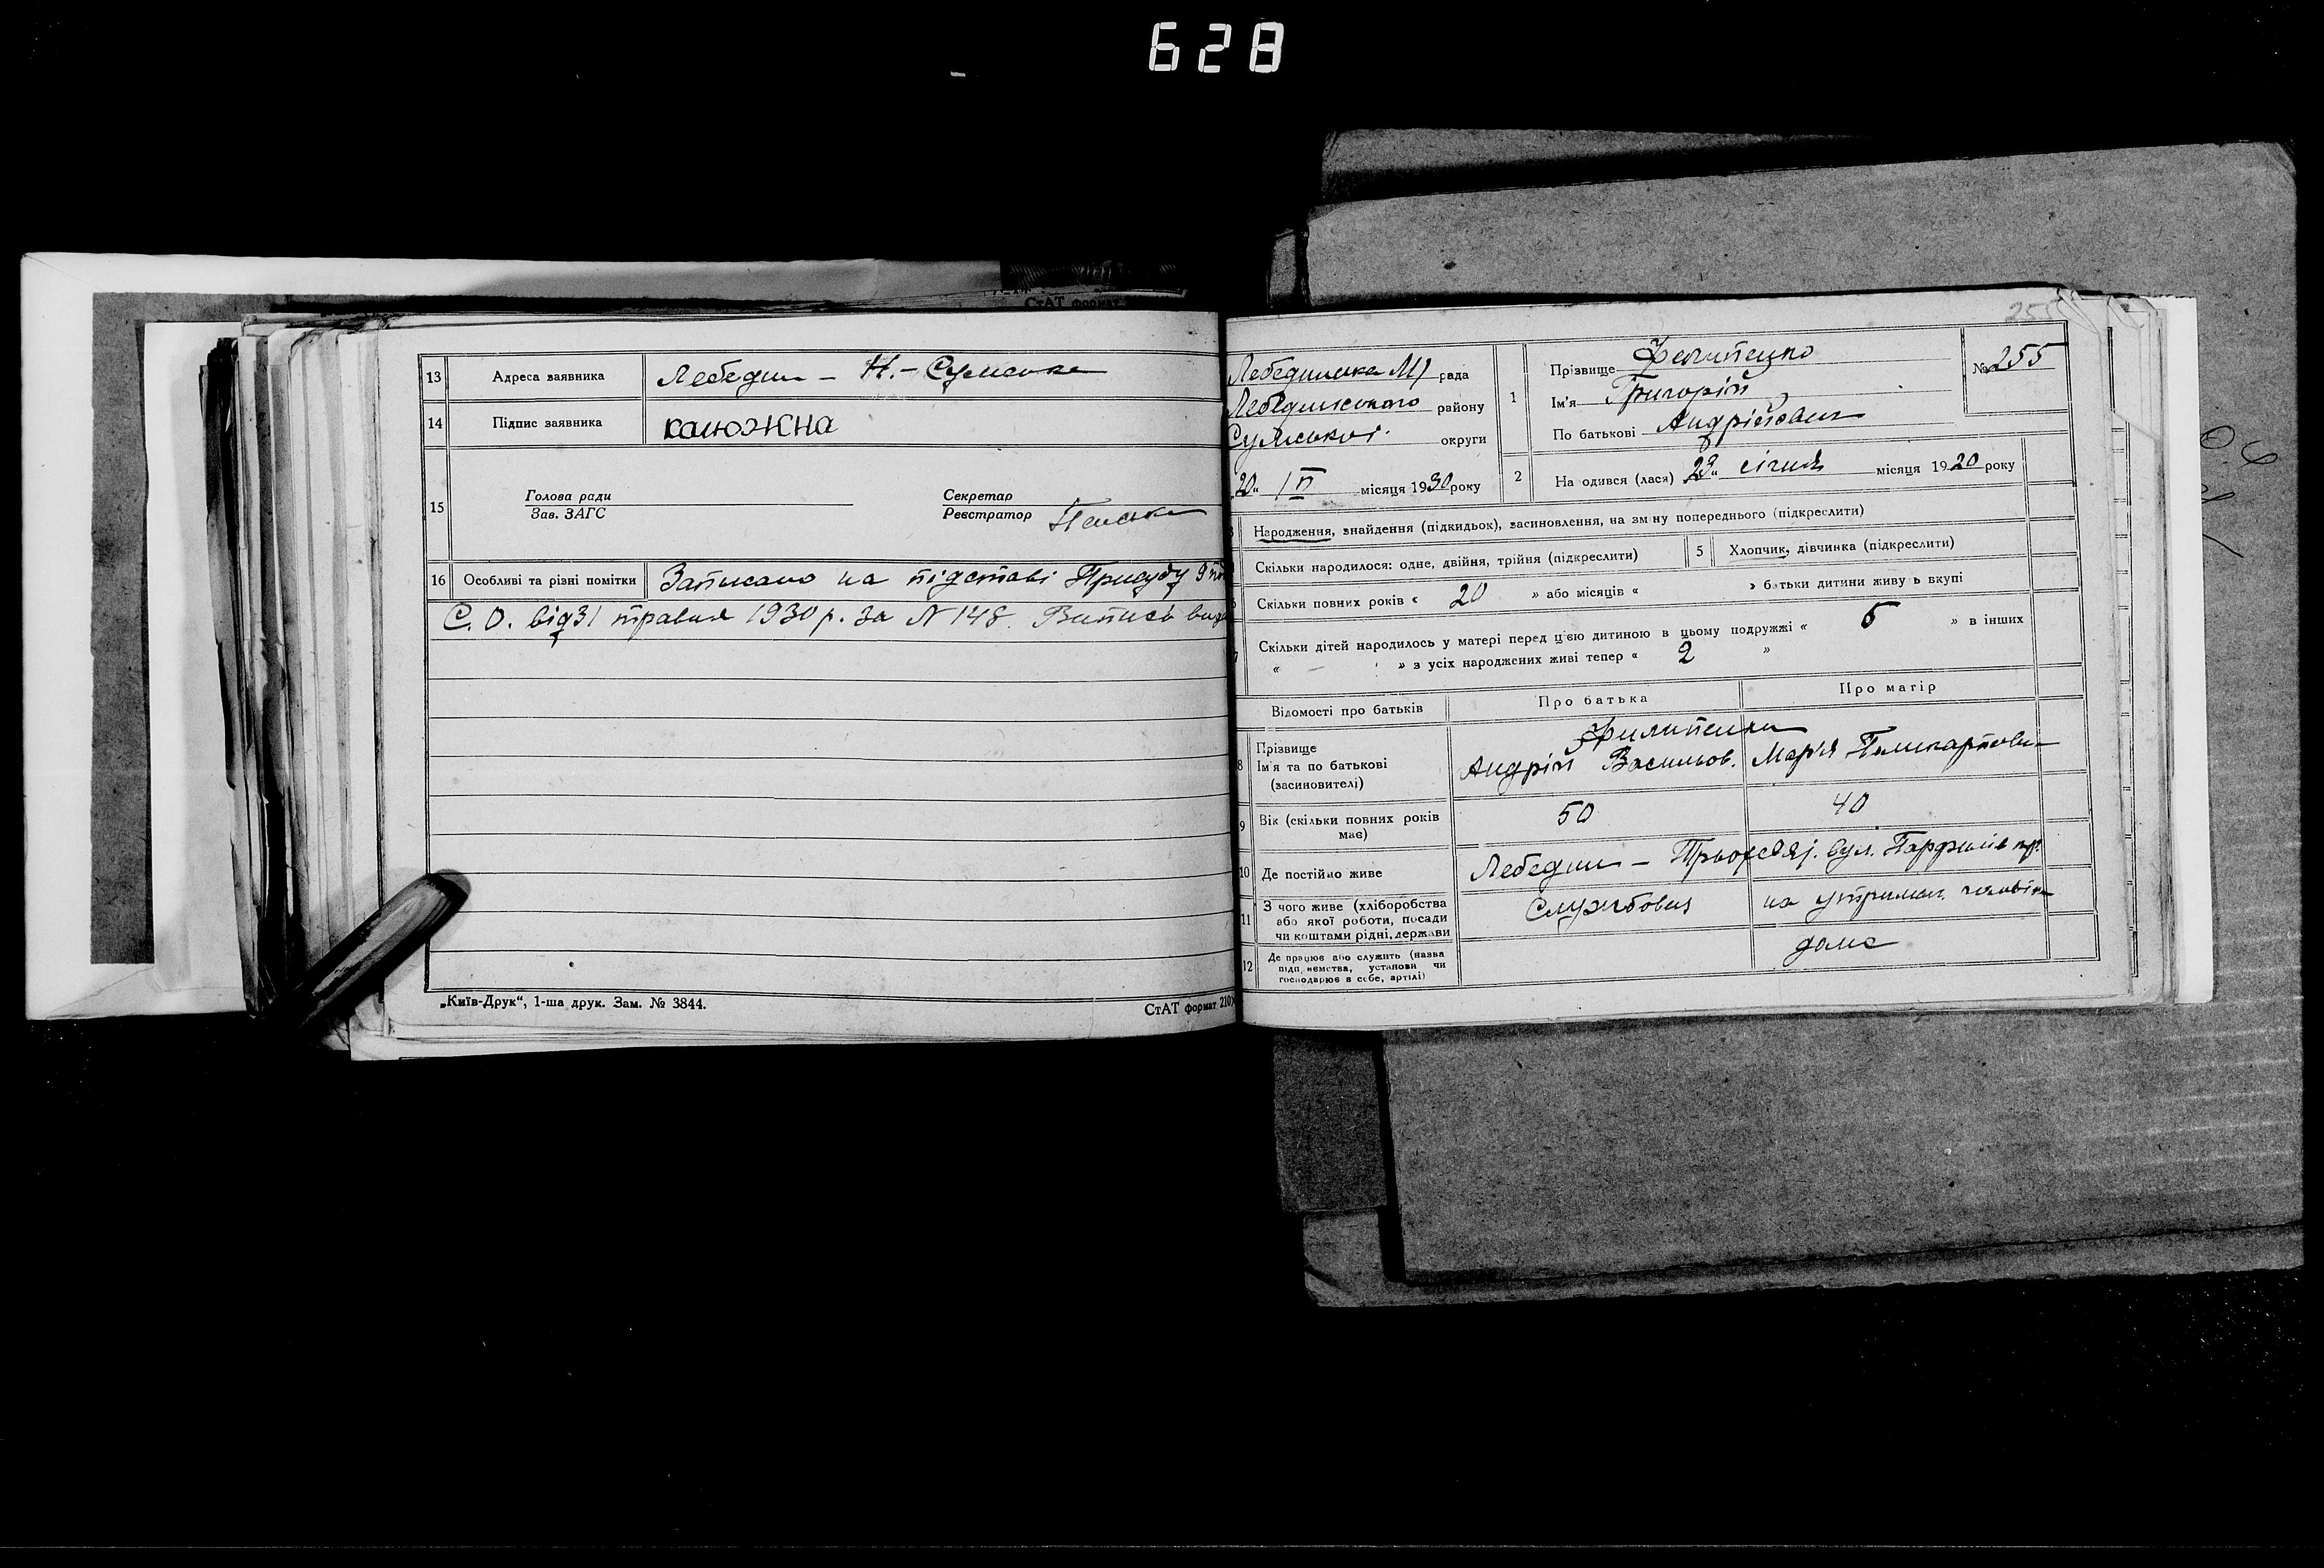 628
СтАТ формат
13 Адреса заявника Лебедин – Н.-Сумська
14 Підпис заявника калюжна
15 Голова ради Секретар
Зав. ЗАГС Реєстратор
16 Особливі та різні помітки Записано на підставі Присуду
С. О. від 31 травня 1930 р. За N 148. Випись
„Київ-Друк“, 1-ша друк. Зам. № 3844.
СтАТ формат 210
255
Лебединська М) рада
Лебединського району
Сумської округи
„20„ IV місяця 1930 року
1 Прізвище Филипенко
Ім'я Григорій
По батькові Андрійович
№ 255
2 На одився (лася) „23„ січня місяця 1920 року
Народження, знайдення (підкидьок), засиновлення, на зміну попереднього (підкреслити)
Скільки народилося: одне, двійня, трійня (підкреслити) 5 Хлопчик, дівчинка (підкреслити)
Скільки повних років « 20 » або місяців « » батьки дитини живу ь вкупі
7 Скільки дітей народилось у матері перед цією дитиною в цьому подружжі « 5 » в інших
« – » з усіх народжених живі тепер « 2 »
Відомості про батьків Про батька Про матір
Прізвище Филипенки
8 Ім'я та по батькові Андрій Васильов. Мар'я Поликарповн
(засиновителі)
9 Вік (скільки повних років має) 50 40
10 Де постійно живе Лебедин – вул.
11 З чого живе (хліборобства Службовця на утриман. чоловіка
або якої роботи, посади
чи коштами рідні, держави
12 Де працює або служить (назва дома
підп иємства, установи чи
господарює в себе, артілі)